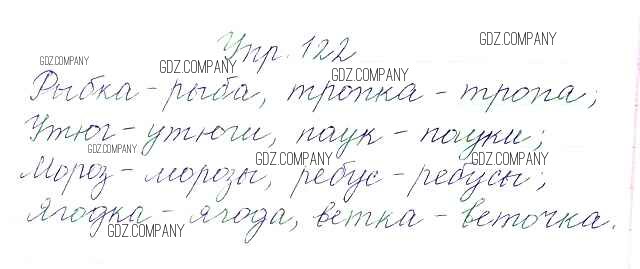 Упр. 122
GDZ.COMPANY
GDZ.COMPANY
GDZ.COMPANY
GDZ.COMPANY
Рыбка - рыба, тропка - тропа;
Утюг - утюги, паук - пауки;
GDZ.COMPANY
GDZ.COMPANY
GDZ.COMPANY
Мороз - морозы, ребус - ребусы;
Ягодка - ягода, ветка - веточка.
GDZ.COMPANY